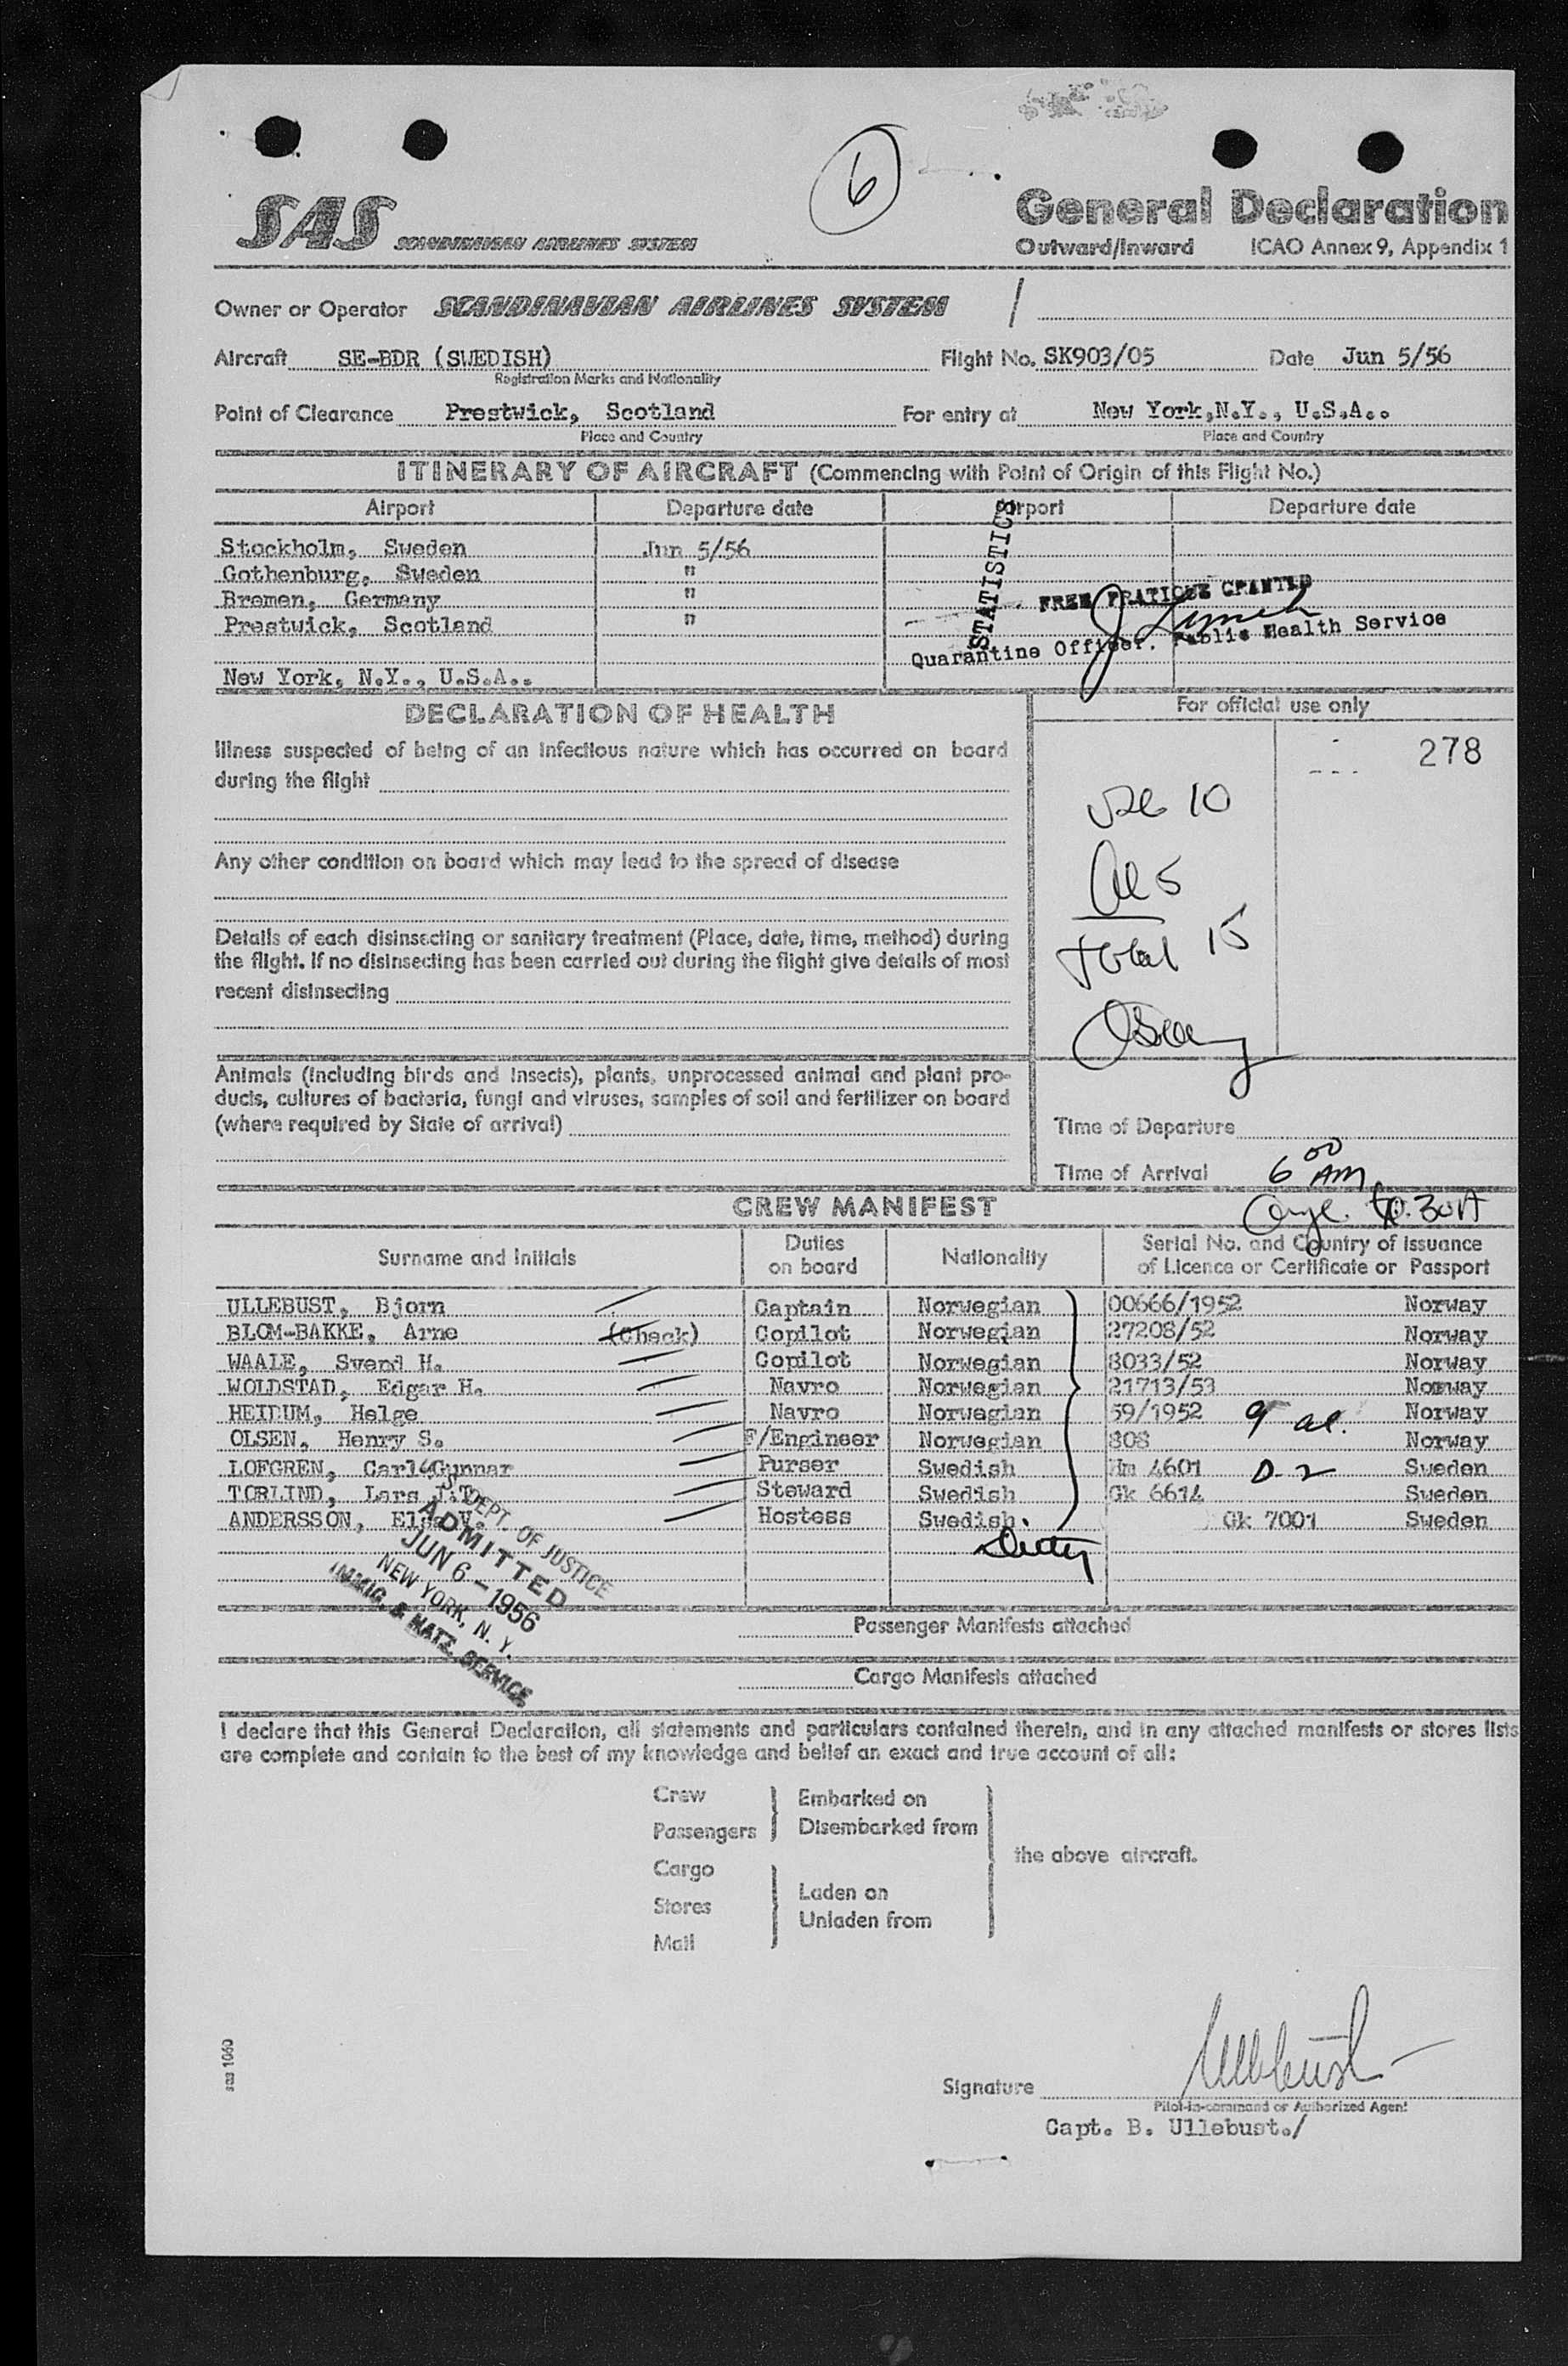 6
SAS SCANDINAVIAN AIRLINES SYSTEM
General Declaration
Outward/Inward ICAO Annex 9, Appendix 1
Owner or Operator SCANDINAVIAN AIRLINES SYSTEM /
Aircraft SE-BDR (SWEDISH) Flight No. SK903/05 Date Jun 5/56
Registration Marks and Nationality
Point of Clearance Prestwick, Scotland For entry at New York,N.Y., U.S.A..
Place and Country Place and Country
ITINERARY OF AIRCRAFT (Commencing with Point of Origin of this Flight No.)
Airport Departure date Airport Departure date
Stockholm, Sweden Jun 5/56
Gothenburg, Sweden "
Bremen, Germany "
Prestwick, Scotland "
New York, N.Y., U.S.A..
STATISTICS
FREE PRATIQUE GRANTED
J Lynch
Quarantine Officer. Public Health Service
DECLARATION OF HEALTH
Illness suspected of being of an infectious nature which has occurred on board
during the flight
Any other condition on board which may lead to the spread of disease
Details of each disinsecting or sanitary treatment (Place, date, time, method) during
the flight. If no disinsecting has been carried out during the flight give details of most
recent disinsecting
Animals (including birds and insects), plants, unprocessed animal and plant pro-
ducts, cultures of bacteria, fungi and viruses, samples of soil and fertilizer on board
(where required by State of arrival)
For official use only
278
10
Al 5
total 15
Time of Departure
Time of Arrival 6 00 AM
CREW MANIFEST
Surname and Initials Duties on board Nationality Serial No. and Country of issuance of Licence or Certificate or Passport
ULLEBUST, Bjorn Captain Norwegian 00666/1952 Norway
BLOM-BAKKE, Arne (Check) Copilot Norwegian 27208/52 Norway
WAALE, Svend H. Copilot Norwegian 8033/52 Norway
WOLDSTAD, Edgar H. Navro Norwegian 21713/53 Norway
HEIDUM, Helge Navro Norwegian 59/1952 9 al. Norway
OLSEN, Henry S. F/Engineer Norwegian 808 Norway
LOFGREN, Carl Gunnar Purser Swedish Hm 4601 D-2 Sweden
TORLIND, Lars J.T. Steward Swedish Gk 6614 Sweden
ANDERSSON, Elsa V. Hostess Swedish Gk 7001 Sweden
DEPT. OF JUSTICE
ADMITTED
JUN 6 - 1956
NEW YORK, N. Y.
IMMIG. & NATZ. SERVICE
Passenger Manifests attached
Cargo Manifests attached
I declare that this General Declaration, all statements and particulars contained therein, and in any attached manifests or stores lists
are complete and contain to the best of my knowledge and belief an exact and true account of all:
Crew
Passengers
Embarked on
Disembarked from
Cargo
Stores
Mail
Laden on
Unladen from
the above aircraft.
sas 1060
Signature Ullebust
Pilot-in-command or Authorized Agent
Capt. B. Ullebust./